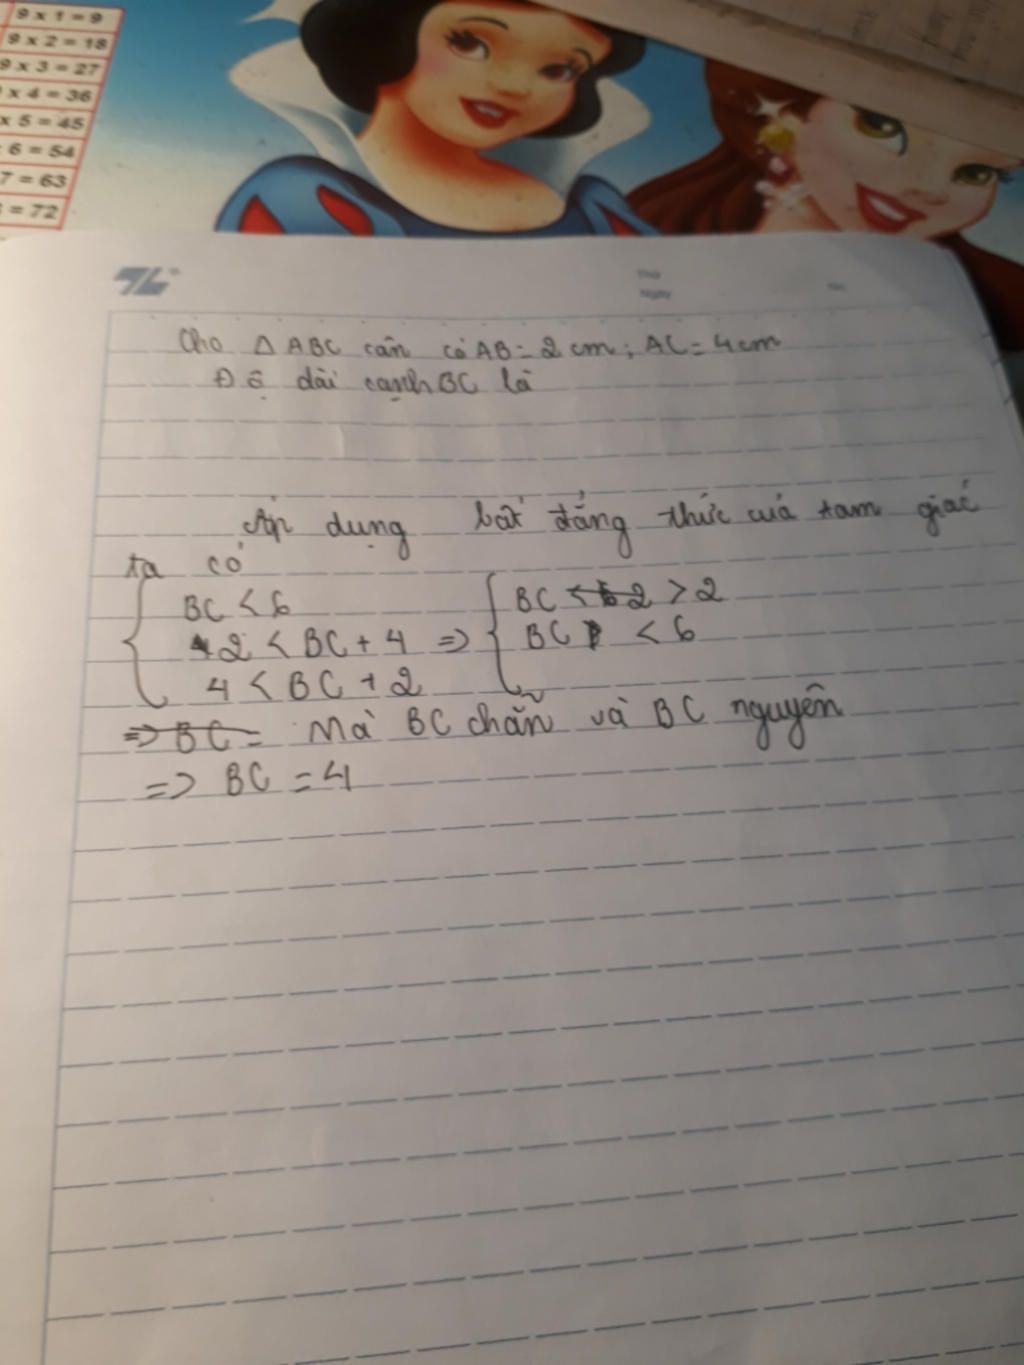 9 x 1 = 9
9 x 2 = 18
9 x 3 = 27
x 4 = 36
x 5 = 45
6 = 54
7 = 63
= 72
Thứ
Ngày
Cho Δ ABC cân có AB = 2 cm; AC = 4 cm
Độ dài cạnh BC là
Áp dụng bất đẳng thức của tam giác
ta có
BC < 6
2 < BC + 4 =>
4 < BC + 2
BC > 2
BC < 6
=> BC = Mà BC chẵn và BC nguyên
=> BC = 4